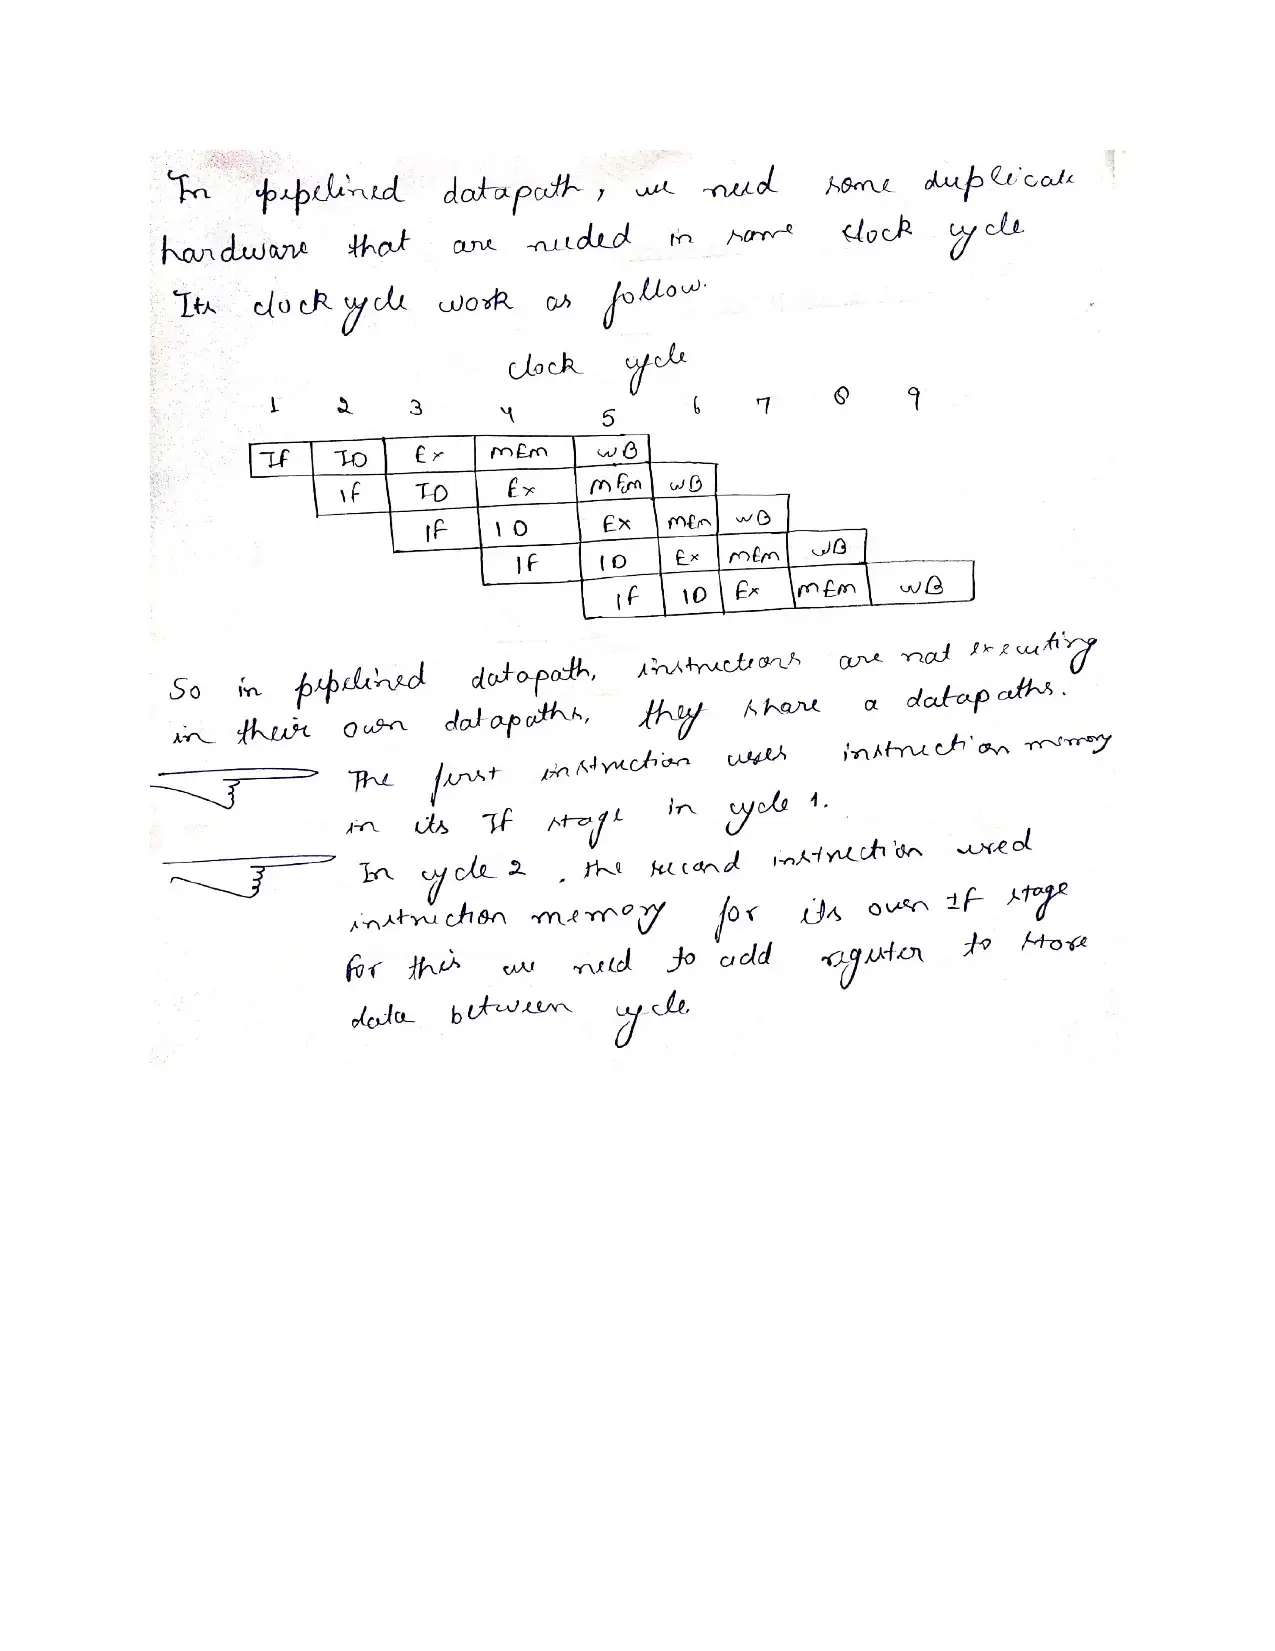 In pipelined datapath, we need some duplicate
hardware that are needed in same clock cycle
Its clock cycle work as follow.
clock cycle
1 2 3 4 5 6 7 8 9
IF ID Ex MEM WB
IF ID Ex MEM WB
IF ID Ex MEM WB
IF ID Ex MEM WB
IF ID Ex MEM WB
So in pipelined datapath, instructions are not executing
in their own datapaths, they share a datapaths.
The first instruction uses instruction memory
in its If stage in cycle 1.
In cycle 2, the second instruction used
instruction memory for its own If stage
for this we need to add register to store
data between cycle.